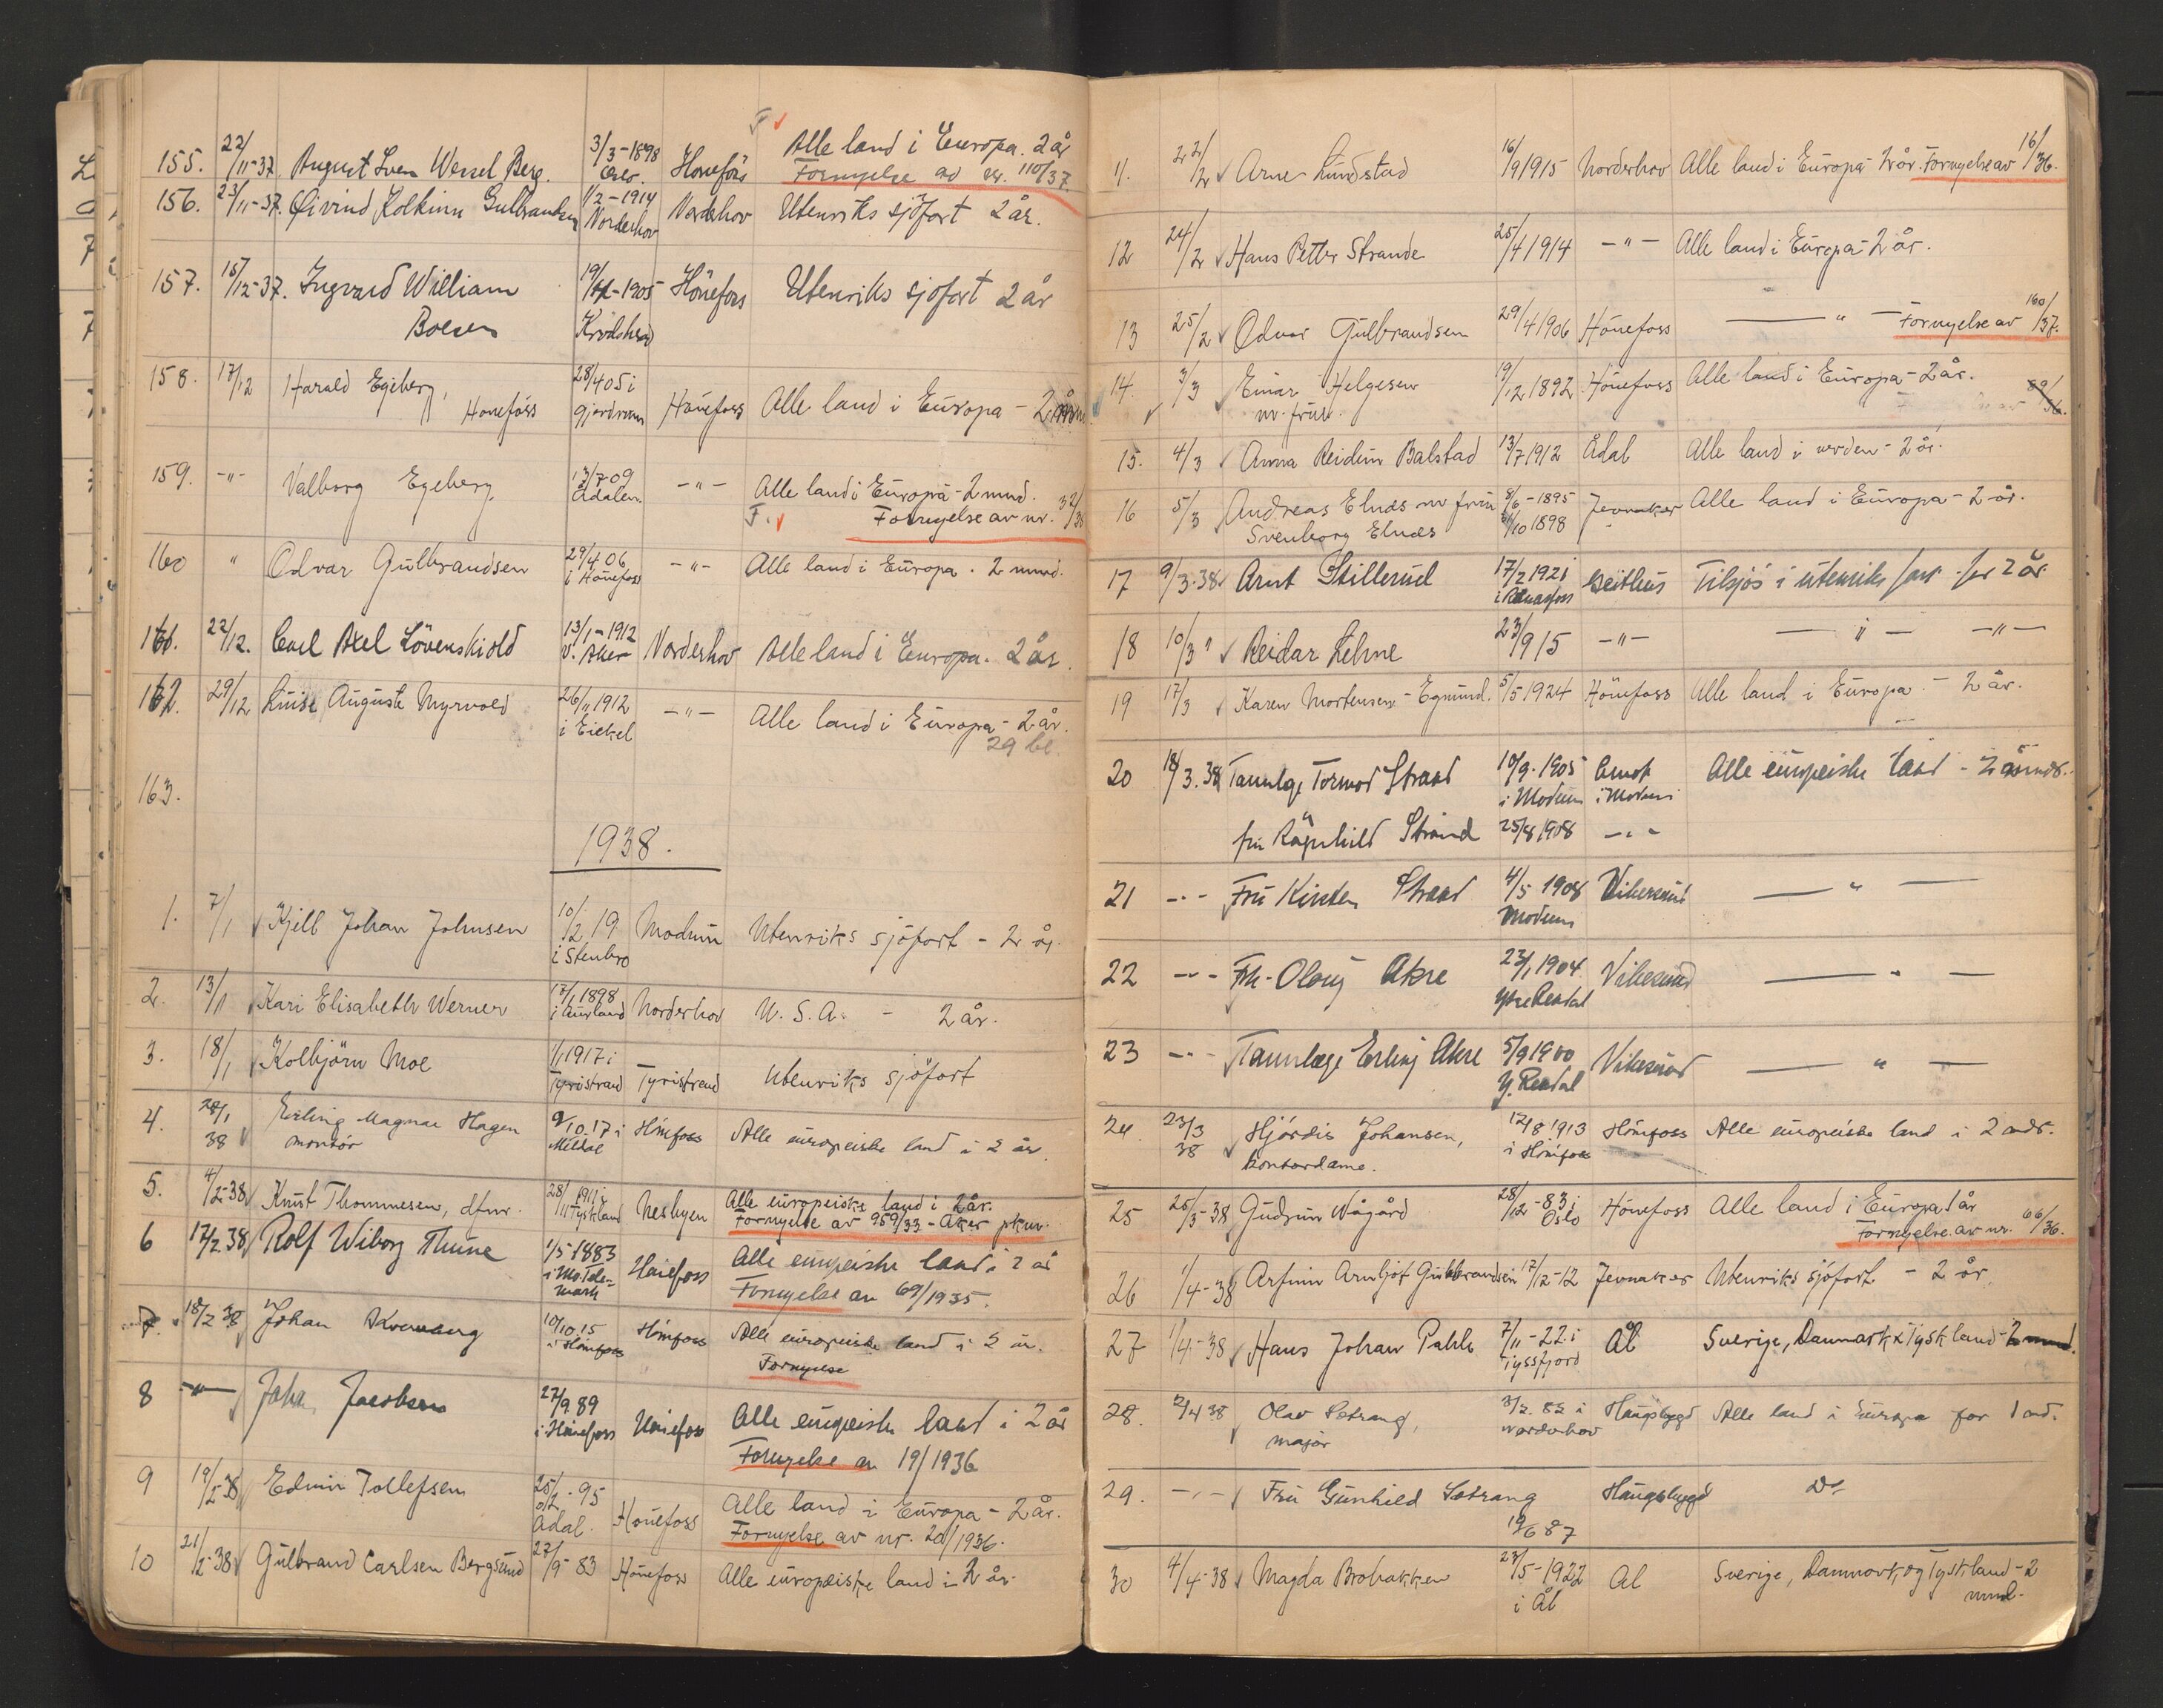 155. 22/11-37 August Sven Wessel Berg. 3/3-1898 Oslo. Hönefoss Alle land i Europa. 2 år
Fornyelse av nr. 110/37.
156. 23/11-37. Øivind Kolkinn Gulbrandsen 1/2-1914 Norderhov Norderhov Utenriks sjöfart 2 år.
157. 15/12-37. Ingvard William Hönefoss Utenriks sjöfart 2 år
Boesen Krödsherad
158. 17/12 Harald Egeberg, 28/4 05 i Gjerdrum Hönefoss Alle land i Europa - 2
Hönefoss
159. -"- Valborg Egeberg 13/7 09 Ådalen. -"- Alle land i Europa - 2 mnd.
F. Fornyelse av nr. 32/
160 " Odvar Gulbrandsen 29/4 06 i Hönefoss -"- Alle land i Europa. 2 mnd.
161. 22/12. Carl Axel Lövenskiold 13/1-1912 V. Aker Norderhov Alle land i Europa. 2 år.
162. 29/12 Luise Auguste Myrvold 26/11 1912 i Eickel -"- Alle land i Europa - 2 år.
29 bl.
163.
1938.
1. 7/1 Kjell Johan Johnsen 10/2 19 i Stenbro Modum Utenriks sjöfart - 2 år.
2. 13/1 Kari Elisabeth Werner 17/1 1898 i Aurland Norderhov U.S.A. - 2 år.
3. 18/1 Kolbjörn Moe 1/1 1917 i Tyristrand Tyristrand Utenriks sjöfart
4. 28/1 38 Erling Magnar Hagen 9/10.17 i Meldal Hönefoss Alle europeiske land i 2 år.
montör
5. 4/2-38 Knut Thommesen, dfmr. 28/11 1911 i Tyskland Nesbyen Alle europeiske land i 2 år.
Fornyelse av 959/33 - Aker pkm.
6 17/2.38 Rolf Wiborg Thune 1/5 1883 i Mo Telemark Hönefoss Alle europeiske land i 2 år
Fornyelse av 69/1935.
7. 18/2 38 Johan Kvernvang 10/10.15 i Hönefoss Hönefoss Alle europeiske land i 2 år.
Fornyelse
8 -"- Johan Jacobsen 27/9 89 i Hönefoss Hönefoss Alle europeiske land i 2 år
Fornyelse av 19/1936
9 19/2-38 Edvin Tollefsen 25/2-95 Ådal. Hönefoss Alle land i Europa - 2 år.
Fornyelse av nr. 20/1936.
10 21/2-38 Gulbrand Carlsen Bergsund 27/9-83 Hönefoss Alle europeiske land i 2 år.
11. 22/2 Arne Lundstad 16/9 1915 Norderhov Alle land i Europa - 2 år. Fornyelse av 16/36.
12 24/2 Hans Petter Strande 25/4 1914 -"- Alle land i Europa - 2 år.
13 25/2 Odvar Gulbrandsen 29/4 1906 Hönefoss -"- Fornyelse av 160/37.
14. 3/3 Einar Helgesen 19/12 1892 Hönefoss Alle land i Europa - 2 år.
m. frue.
15. 4/3 Anna Reidun Balstad 13/7 1912 Ådal Alle land i verden - 2 år.
16 5/3 Andreas Elnæs m frue 8/6-1895 Jevnaker Alle land i Europa - 2 år.
Svenborg Elnæs /10 1898
17 9/3-38 Arnt Stillerud 17/2 1921 Geithus Tilsjös i utenriks fart for 2 år
18 10/3 " Reidar Lehne 23/9 15 -"- -"- -"-
19 17/3 Karen Mortensen-Egmund. 5/5 1924 Hönefoss Alle land i Europa - 2 år.
20 18/3.38 Tannlege Tormod Strand 10/9-1905 i Modum Åmot i Modum Alle europeiske land - 2
fru Ragnhild Strand 25/8 1908 -"-
21 -"- Fru Kirsten Strand 4/5 1908 Modum Vikersund -"-
22 -"- Frk. Olaug Akre 23/1 1904 Ytre Rendal Vikersund -"-
23 -"- Tannlege Erling Akre 5/9 1900 Y. Rendal Vikersund -"-
24 23/3 38 Hjördis Johansen, 12/8 1913 i Hönefoss Hönefoss Alle europeiske land i 2 mdr.
kontordame.
25 25/3-38 Gudrun Wågård 28/12-83 i Oslo Hönefoss Alle land i Europa 1 år
Fornyelse av nr. 66/36.
26 1/4-38 Arfinn Arnljot Gulbrandsen 17/12-12 Jevnaker Utenriks sjöfart - 2 år
27 1/4-38 Hans Johan Pahle 7/11-22 i Tyssfjord Ål Sverige, Danmark & Tyskland - 2 mnd.
28. 2/4 38 Olav Setrang, 3/2.82 i Norderhov Haugsbygd Alle land i Europa for 1 md.
major
29. -"- Fru Gunhild Setrang Haugsbygd Do
19/6 87
30 4/4-38 Magda Brobakken 23/5-1922 i Ål Ål Sverige, Danmark og Tyskland - 2
mnd.